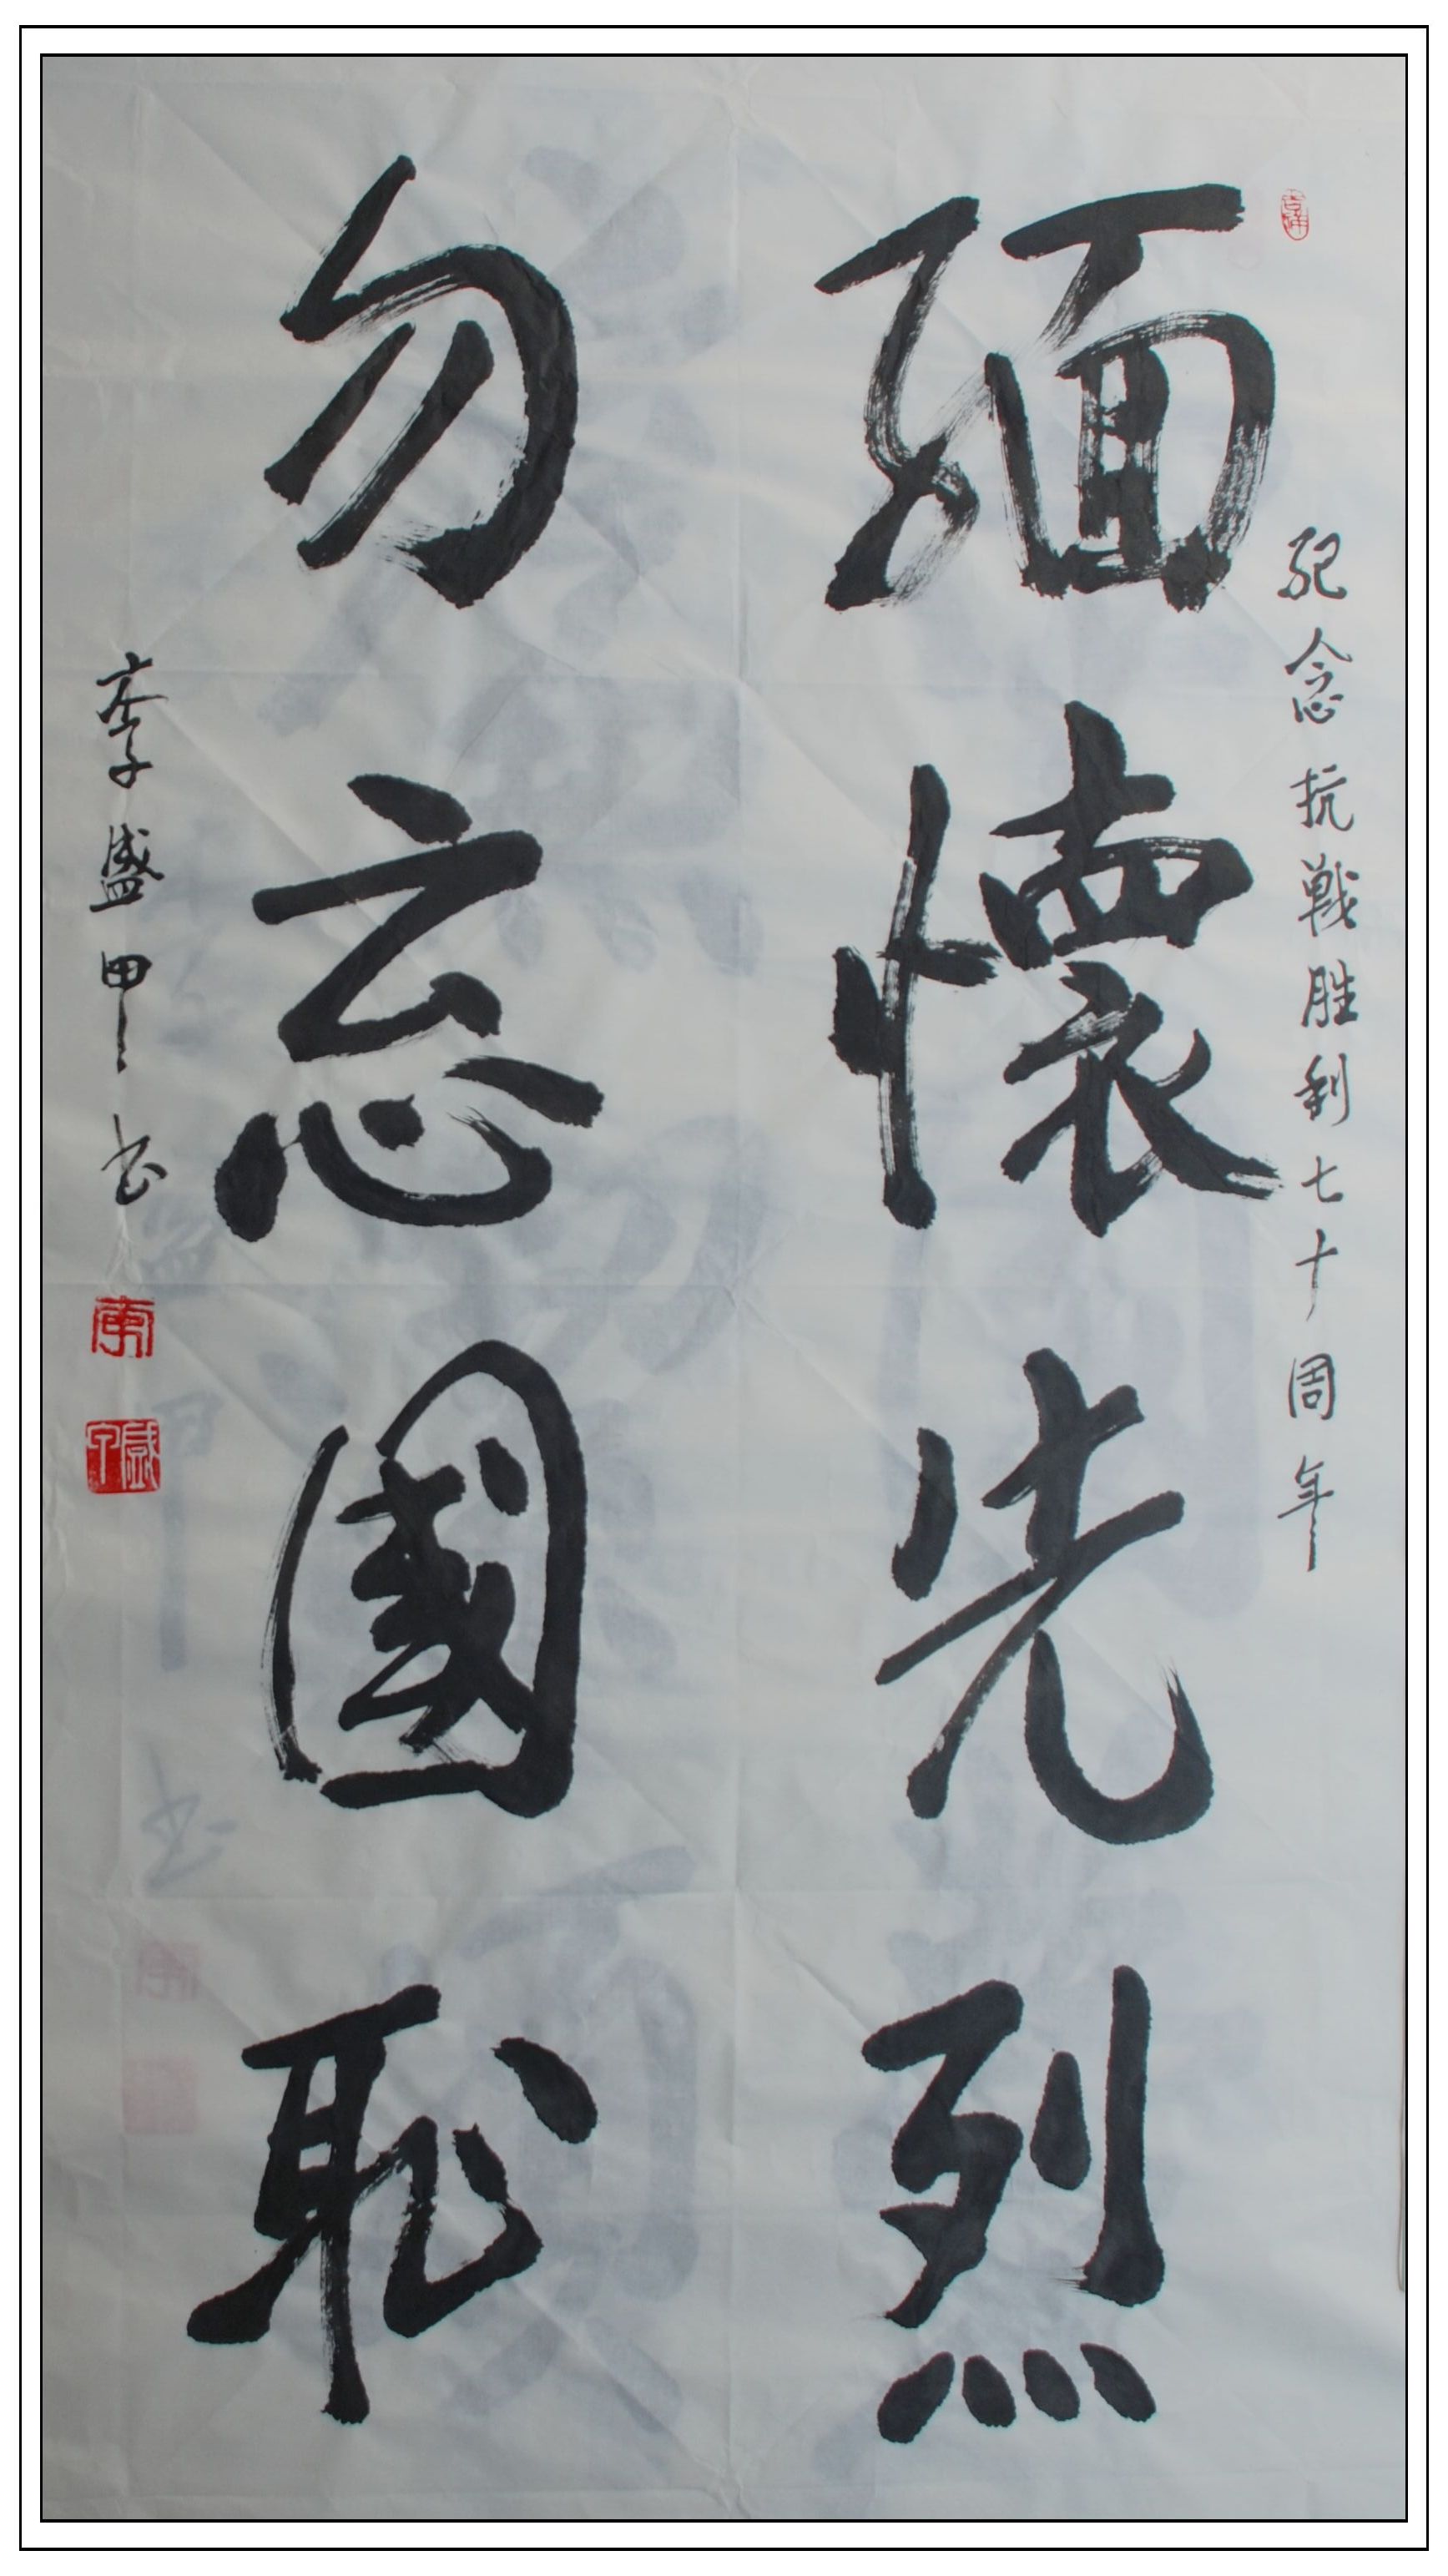 纪念抗战胜利七十周年
缅懷先烈
勿忘國恥
李盛甲书